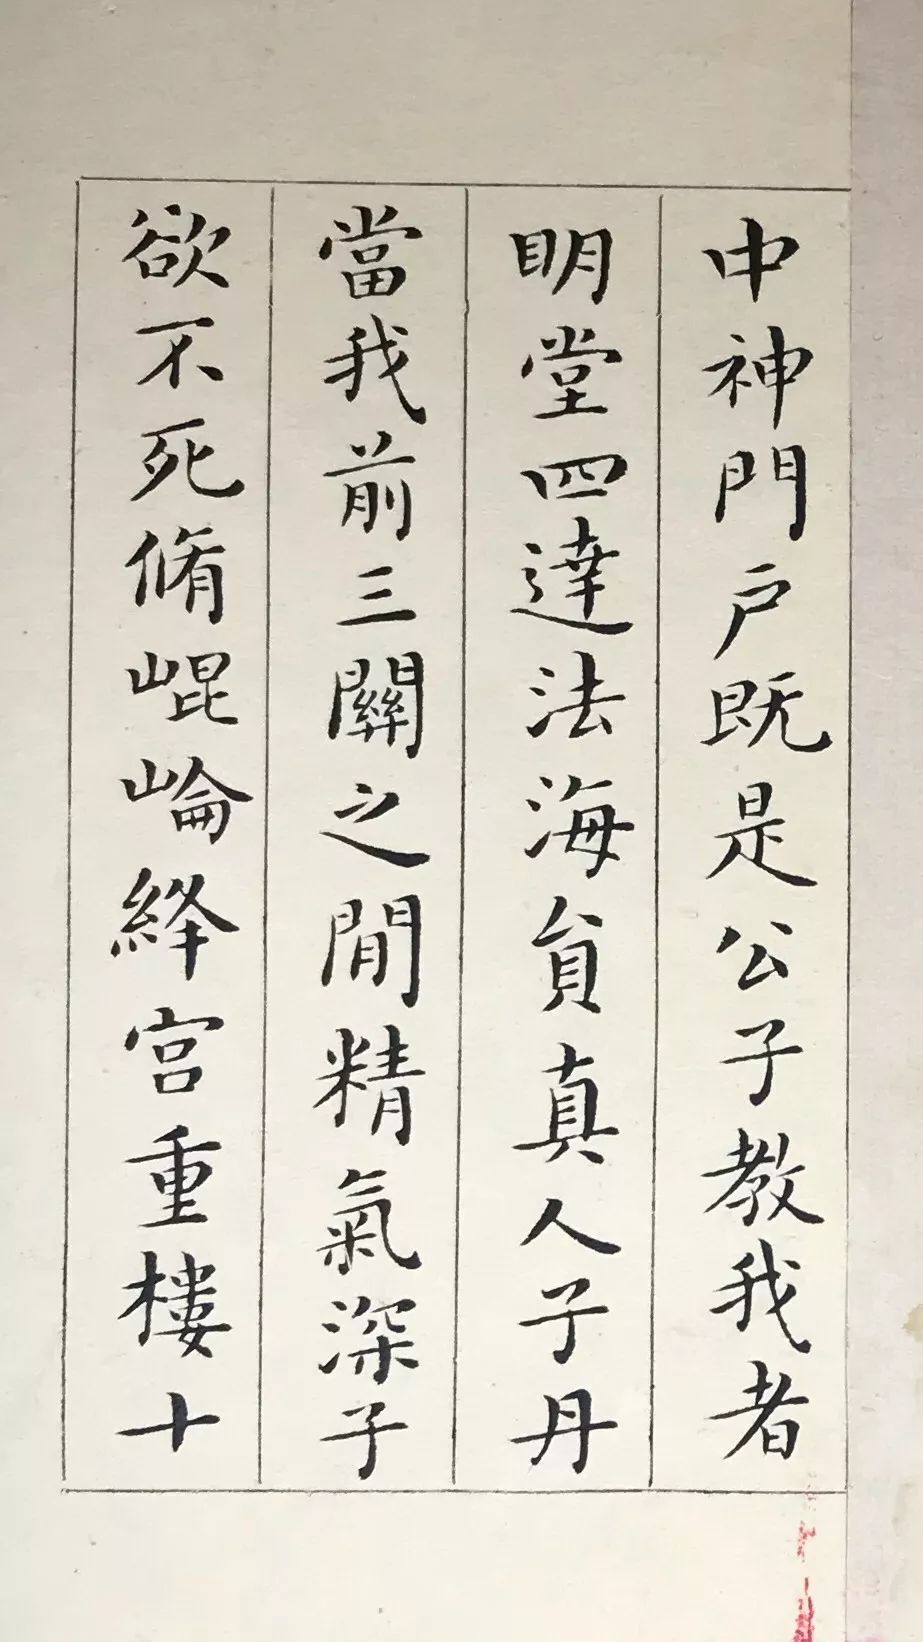 中神門戶既是公子教我者
明堂四達法海貟真人子丹
當我前三關之閒精氣深子
欲不死脩崐崘絳宮重樓十